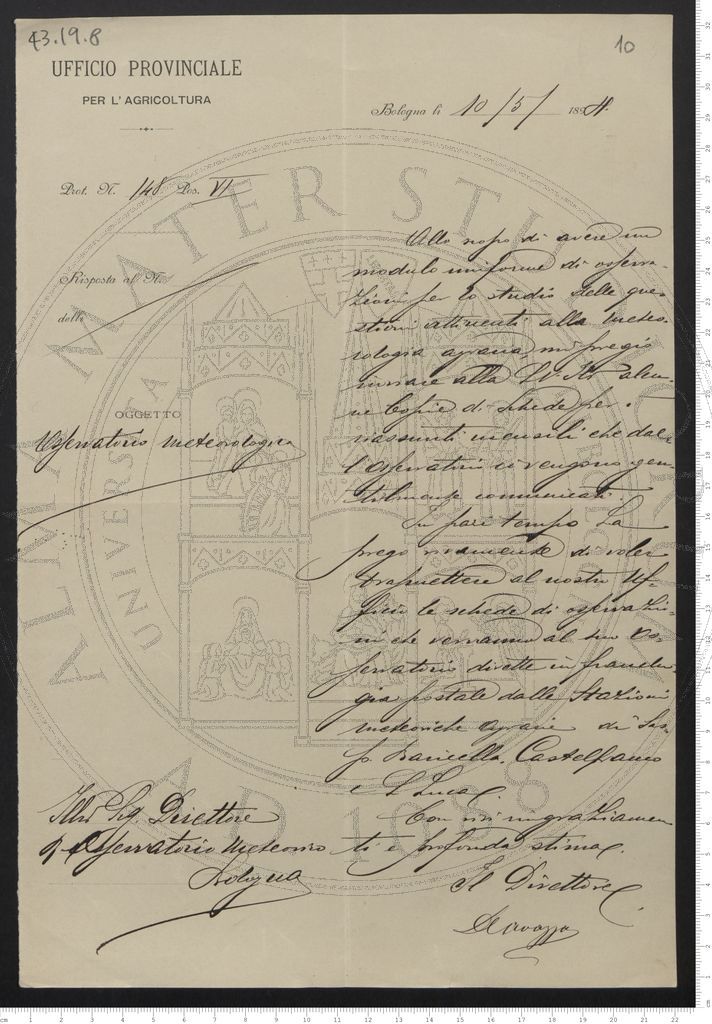 43.19.8
10
UFFICIO PROVINCIALE
PER L'AGRICOLTURA
Bologna li 10/5/ 189
Prot. N. 148 Pos. VI
Risposta al N.
delli
OGGETTO
Osservatorio meteorologico
Allo scopo di avere un
modulo uniforme di osserva-
zioni per lo studio delle que-
stioni attinenti alla meteo-
rologia agraria, mi pregio
inviare alla S. V. Ill alcu-
ne Copie di schede per i
riassunti mensili che dal-
l'Osservatorio ci vengono gen-
tilmente comunicati.
In pari tempo La
prego vivamente di voler
trasmettere al nostro Uf-
ficio le schede di osservazio-
ni che verranno al suo Os-
servatorio dirette in franchi-
gia postale dalle Stazioni
meteoriche agrarie di
Baricella, Castelfranco
e S. Luca.
Con vivi ringraziamen
ti e profonda stima.
Il Direttore
Illmo Sig. Direttore
Osservatorio Meteorico
Bologna
ALMA MATER STUDIORUM
UNIVERSITA
A.D. 1088